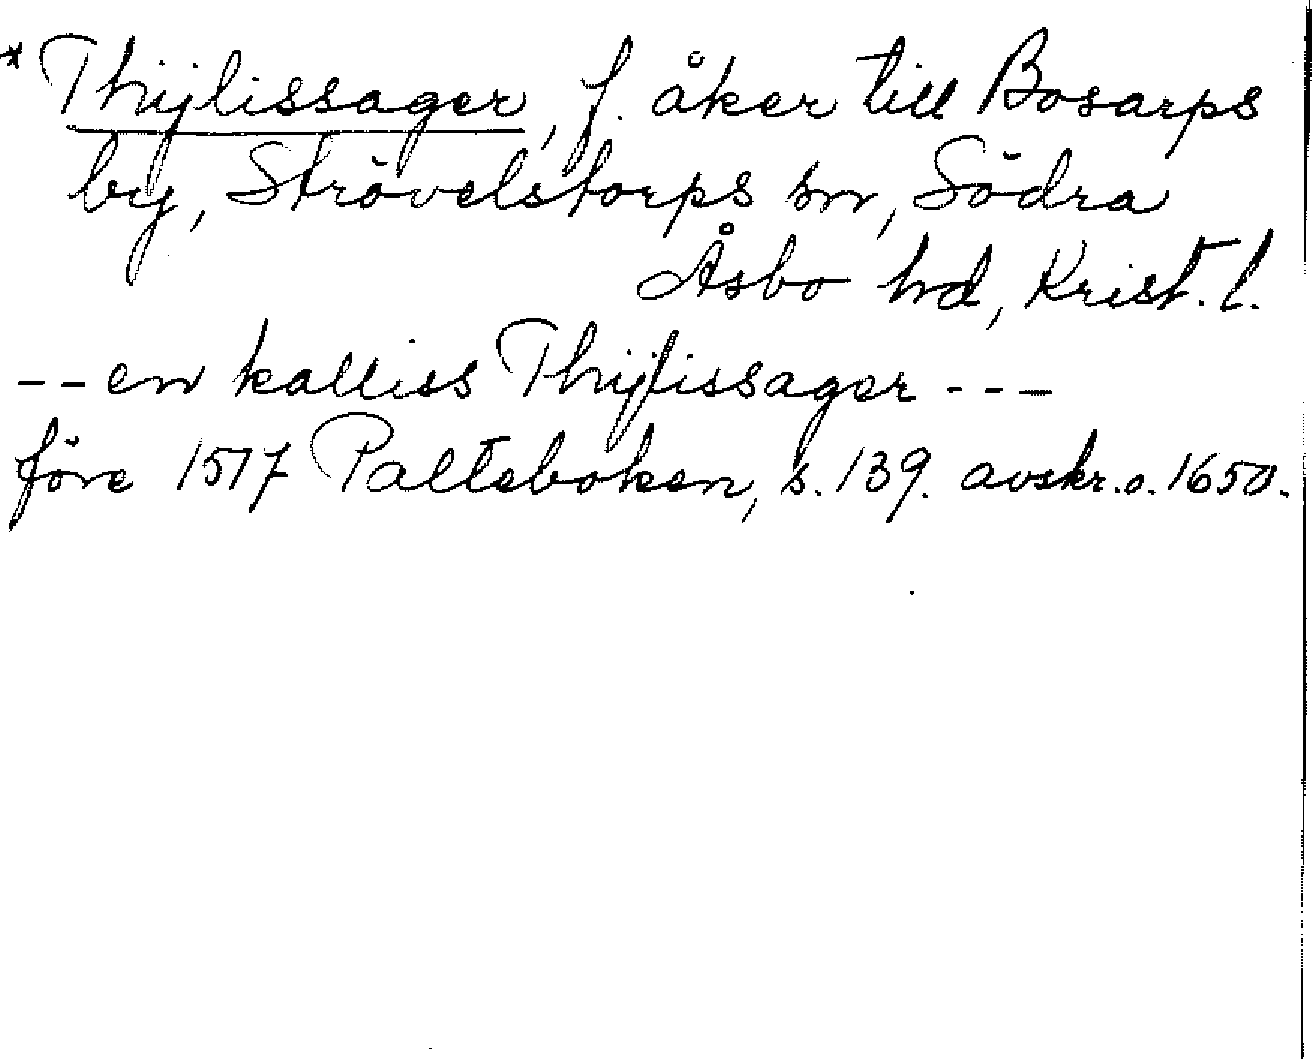 *Thijlissager, f. åker till Bosarps
by, Strövelstorps sn, Södra
Åsbo hd, Krist. l.
--en kalliss Thijlissager---
före 1517 Palteboken, s. 139. avskr. o. 1650.